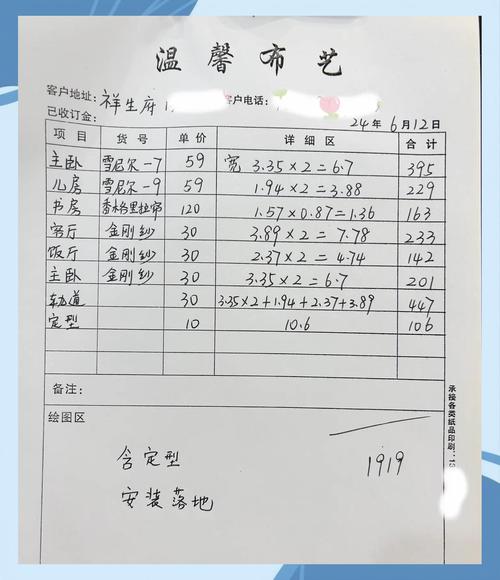 温馨布艺
客户地址: 祥生府 客户电话:
已收订金: 24年6月12日
项目 货号 单价 详细区 合计
主卧 雪尼尔-7 59 宽 3.35×2=6.7 395
儿房 雪尼尔-9 59 1.94×2=3.88 229
书房 香格里拉帘 120 1.57×0.87=1.36 163
客厅 金刚纱 30 3.89×2=7.78 233
饭厅 金刚纱 30 2.37×2=4.74 142
主卧 金刚纱 30 3.35×2=6.7 201
轨道 30 3.35×2+1.94+2.37+3.89 447
定型 10 10.6 106
备注:
绘图区
含定型 1919
安装落地
承接各类纸品印刷:13